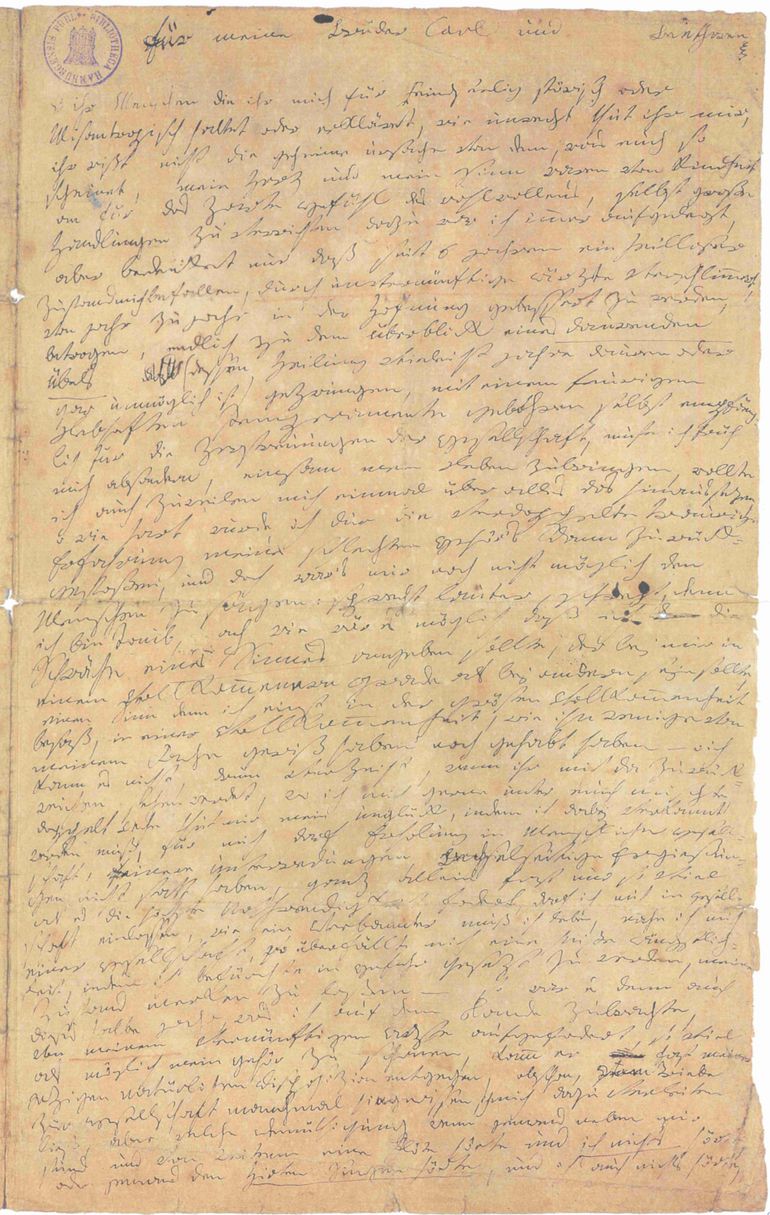 für meine Brüder Carl und Beethowen
O ihr Menschen die ihr mich für Feindseelig störisch oder
Misantropisch haltet oder erkläret, wie unrecht thut ihr mir,
ihr wißt nicht die geheime urßache von dem, was euch so
scheinet, mein Herz und mein Sinn waren von Kindheit
an für das Zarte Gefühl des wohlwollens, selbst große
Handlungen zu verrichten dazu war ich immer aufgelegt,
aber bedenket nur daß seit 6 jahren ein heilloser
Zustand mich befallen, durch unvernünftige ärzte verschlimmert,
von jahr zu jahr in der Hofnung gebessert zu werden,
betrogen, endlich zu dem überblick eines daurenden
Übels (dessen Heilung vieleicht jahre dauren oder
gar unmöglich ist) gezwungen, mit einem feurigen
Lebhaften Temperamente gebohren selbst empfäng-
lich für die Zerstreuungen der Gesellschaft, muste ich früh
mich absondern, einsam mein Leben zubringen, wollte
ich auch zuweilen mich einmal über alles das hinaussezen,
o wie hart wurde ich dur die verdoppelte traurige
Erfahrung meines schlechten Gehör's dann zurück-
gestoßen, und doch war's mir noch nicht möglich den
Menschen zu sagen: sprecht lauter, schrejt, denn
ich bin Taub, ach wie wär es möglich daß ich die
Schwäche eines Sinnes angeben sollte, der bej mir in
einem vollkommenern Grade als bej andern seyn sollte,
einen Sinn den ich einst in der grösten Vollkommenheit
besaß, in einer Vollkommenheit, wie ihn wenige von
meinem Fache gewiß haben noch gehabt haben — o ich
kann es nicht, drum verzeiht, wenn ihr mich da zurück-
weichen sehen werdet, wo ich mich gerne unter euch mischte,
doppelt Wehe thut mir mein unglück, indem ich dabej verkannt
werden muß, für mich darf Erholung in Menschlicher Gesell-
schaft, feinere unterredungen, Wechselseitige Ergießun-
gen nicht statt haben, ganz allein fast nur so viel
als es die höchste Nothwendigkeit fodert, darf ich mich in gesell-
schaft einlassen, wie ein Verbannter muß ich leben, nahe ich mich
einer Gesellschaft, so überfällt mich eine heiße Ängstlich-
keit, indem ich befürchte in Gefahr gesezt zu werden, meinen
Zustand merken zu laßen — so war es denn auch
dieses halbe jahr, was ich auf dem Lande zubrachte,
von meinem vernünftigen Arzte aufgefodert, so viel
als möglich mein Gehör zu schonen, kamm er fast meiner
jezigen natürlichen Disposizion entgegen, obschon, Vom Triebe
zur Gesellschaft manchmal hingerissen, ich mich dazu verleiten
ließ, aber welche Demüthigung wenn jemand neben mir
stund und von weitem eine Flöte hörte und ich nichts hörte,
oder jemand den Hirten Singen hörte, und ich auch nichts hörte,